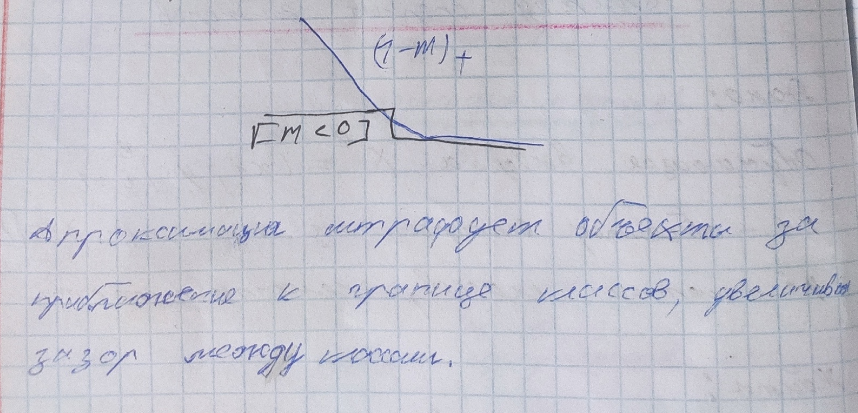 (1-M)+
[M<0]
Аппроксимация штрафует объекты за
приближение к границе классов, увеличивая
зазор между классами.